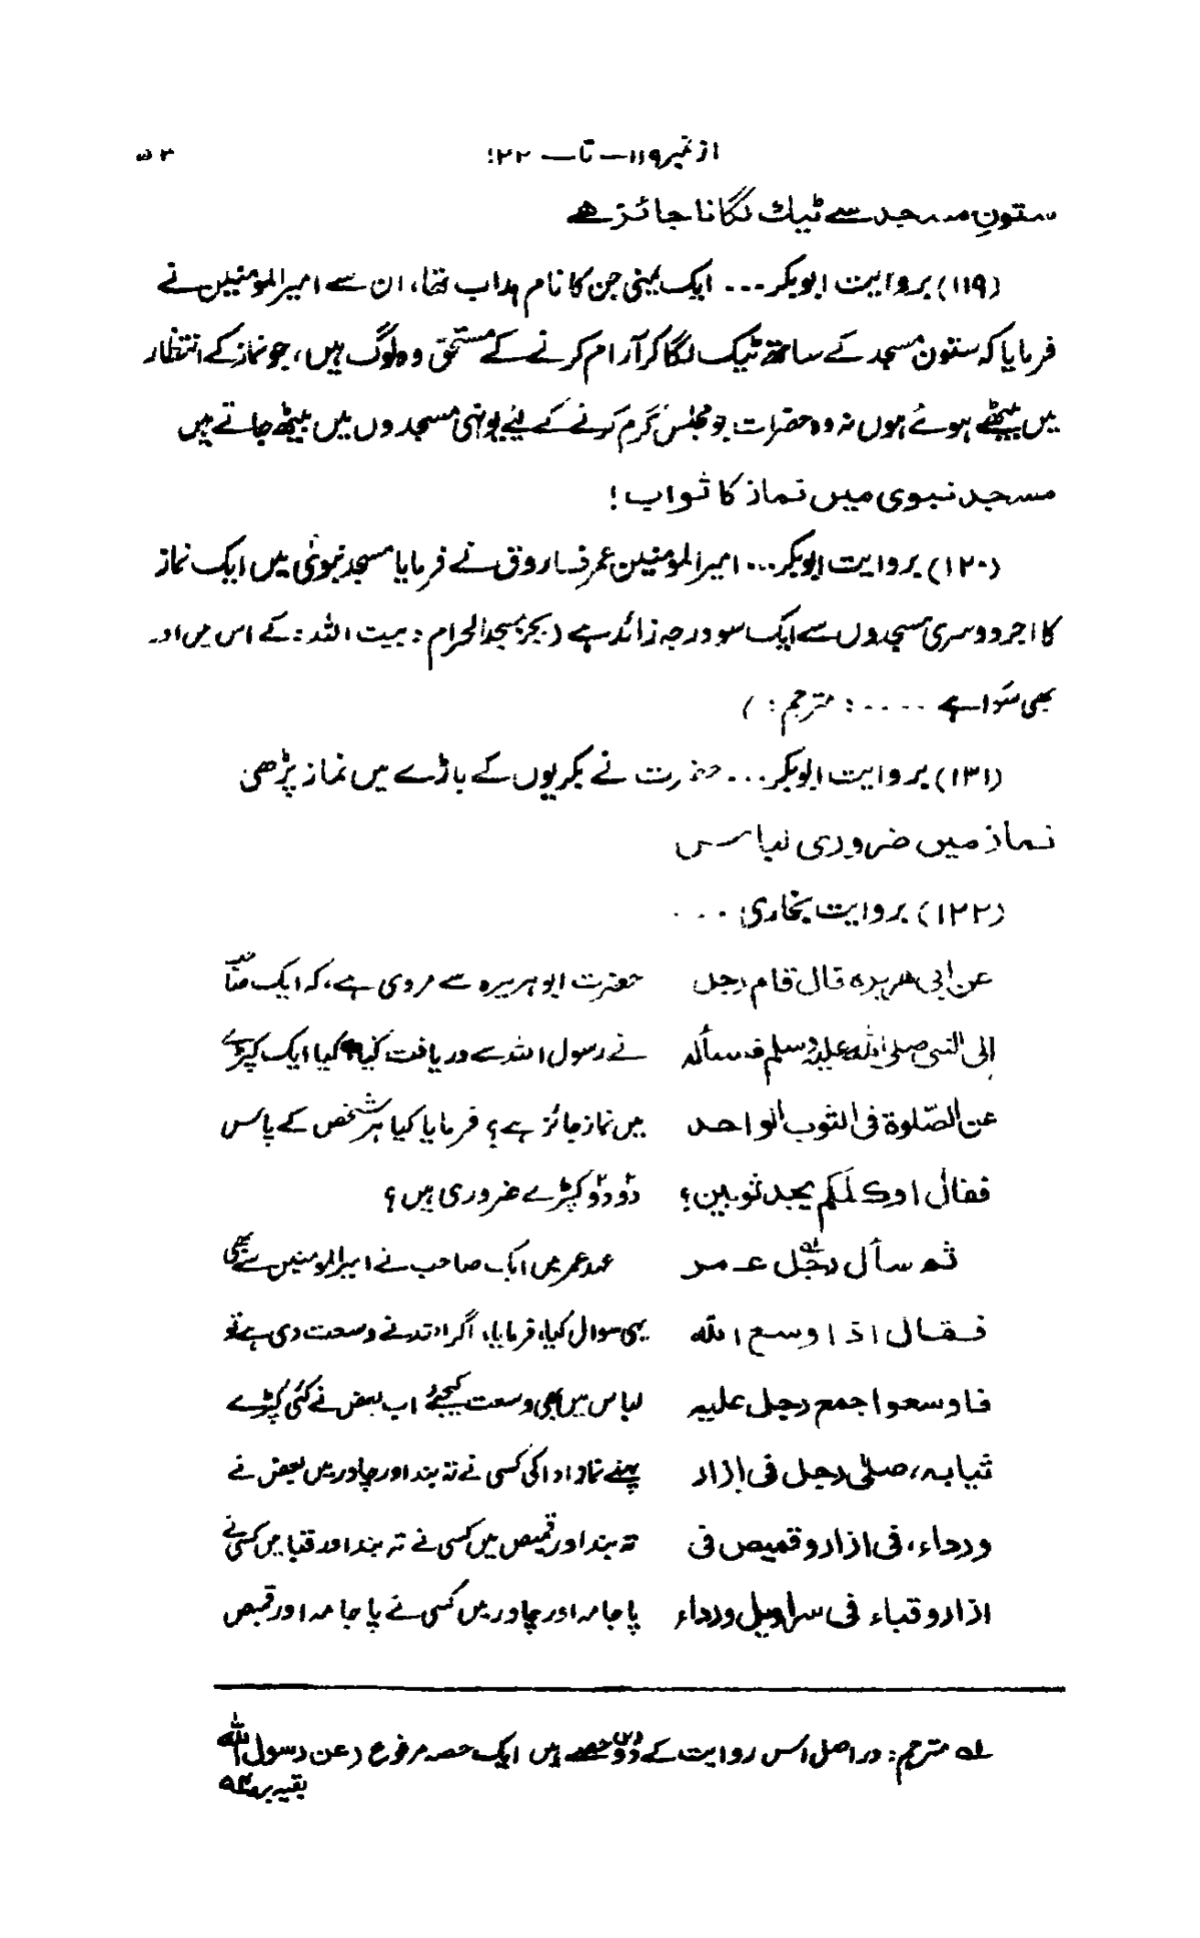 از نمبر ۱۱۹ — تا — ۱۲۲ ۵۳
ستونِ مسجد سے ٹیک لگانا جائز ہے
(۱۱۹) بروایت ابوبکر... ایک یمنی جن کا نام ہداب تھا، ان سے امیرالمومنین نے
فرمایا کہ ستون مسجد کے ساتھ ٹیک لگا کر آرام کرنے کے مستحق وہ لوگ ہیں، جو نماز کے انتظار
میں بیٹھے ہوئے ہوں نہ وہ حضرات جو مجلس گرم کرنے کے لیے یونہی مسجدوں میں بیٹھ جاتے ہیں
مسجد نبوی میں نماز کا ثواب!
(۱۲۰) بروایت ابوبکر... امیرالمومنین عمر فاروق نے فرمایا مسجد نبوی میں ایک نماز
کا اجر دوسری مسجدوں سے ایک سو درجہ زائد ہے (بجز مسجد الحرام: بیت اللہ: کے اس میں اور
بھی سوا ہے ....: مترجم:)
(۱۳۱) بروایت ابوبکر... حضرت نے بکریوں کے باڑے میں نماز پڑھی
نماز میں ضروری لباس
(۱۲۲) بروایت بخاری: ...
عن ابی هریره قال قام رجل حضرت ابو ہریرہ سے مروی ہے، کہ ایک صاحب
الی النبی صلی الله علیه وسلم فسأله نے رسول اللہ سے دریافت کیا کیا ایک کپڑے
عن الصّلوة فی الثوب الواحد میں نماز جائز ہے؟ فرمایا کیا ہر شخص کے پاس
فقال اوکلکم یجد ثوبین؟ دو دو کپڑے ضروری ہیں؟
ثم سأل رجل عمر عہد عمر میں ایک صاحب نے امیرالمومنین سے بھی
فقال اذا وسع الله یہی سوال کیا، فرمایا، اگر اللہ نے وسعت دی ہے تو
فاوسعوا جمع رجل علیه لباس میں بھی وسعت کیجئے اب بعض نے کئی کپڑے
ثیابه، صلی رجل فی ازار پہنے نماز ادا کی کسی نے تہ بند اور چادر میں بعض نے
ورداء، فی ازار وقمیص فی تہ بند اور قمیص میں کسی نے تہ بند اور قبا میں کسی نے
ازار وقباء فی سراویل ورداء پاجامہ اور چادر میں کسی نے پاجامہ اور قمیص
لہ مترجم: دراصل اس روایت کے دو (۲) حصے ہیں ایک حصہ مرفوع (عن رسول اللہ
بقیہ بر